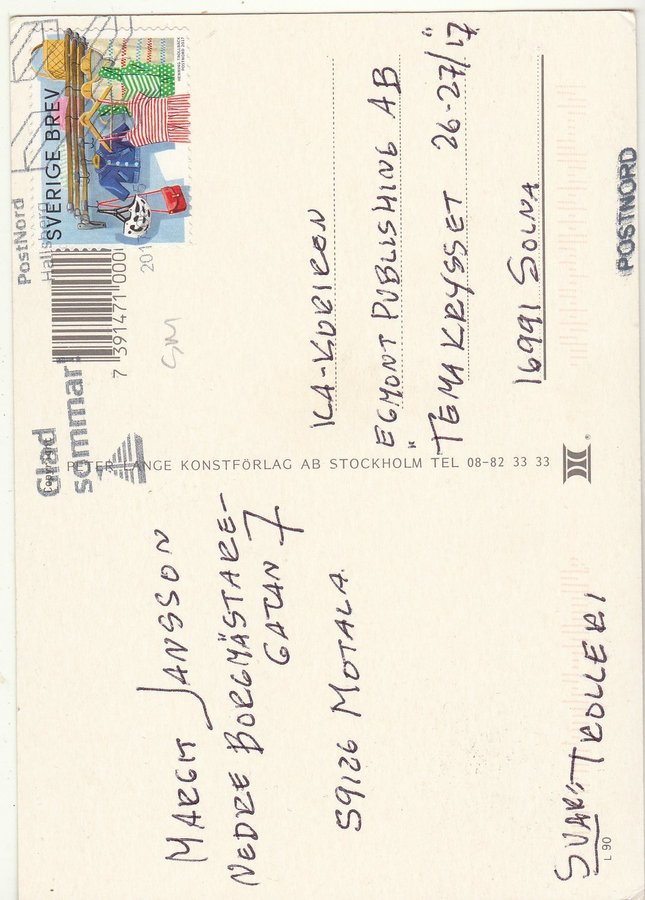 MARGIT JANSSON
NEDRE BORGMÄSTARE-
GATAN 7
59126 MOTALA
SVAR: TROLLERI
L 90
PETER LANGE KONSTFÖRLAG AB STOCKHOLM TEL 08-82 33 33
Glad
sommar!
PostNord
SVERIGE BREV
HENNING TROLLBÄCK
POSTNORD 2017
7 391471 000
201
GM
ICA-KURIREN
EGMONT PUBLISHING AB
"TEMAKRYSSET 26-27/17"
16991 SOLNA
POSTNORD